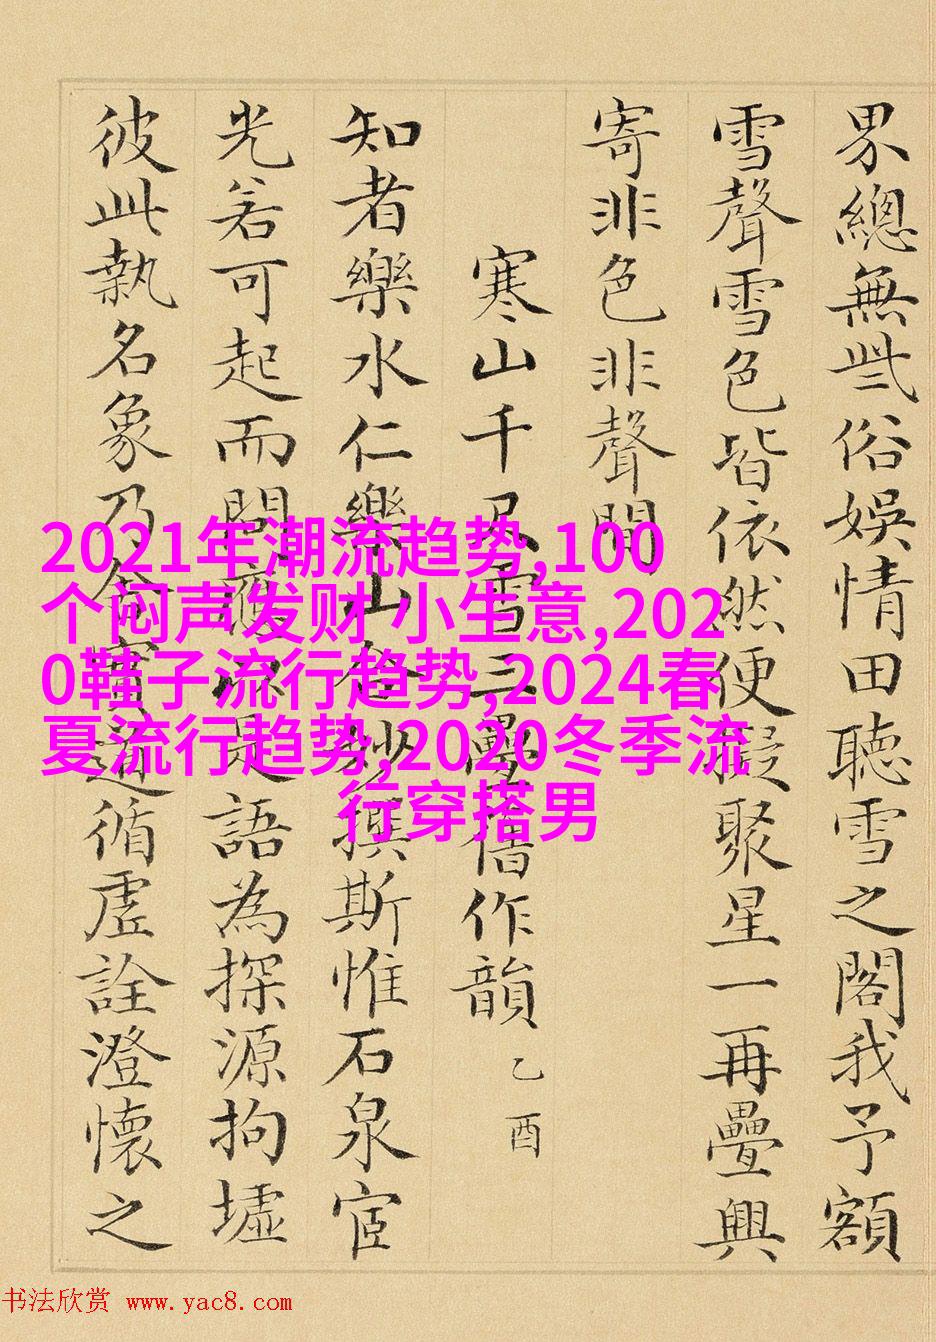 界總無些俗娛情田聽雪之閣我予額
雪聲雪色皆依然便擬聚星一再疊興
寄非色非聲間
寒山千尺雪三疊舊作韻 乙酉
知者樂水仁樂山妙撰斯惟石泉宦
光若可起而問是語為探源拘墟
彼此執名象乃循虛詮澄懷之
2021年潮流趋势,100
个闷声发财 小生意,202
0鞋子流行趋势,2024春
夏流行趋势,2020冬季流
行穿搭男
书法欣赏 www.yac8.com